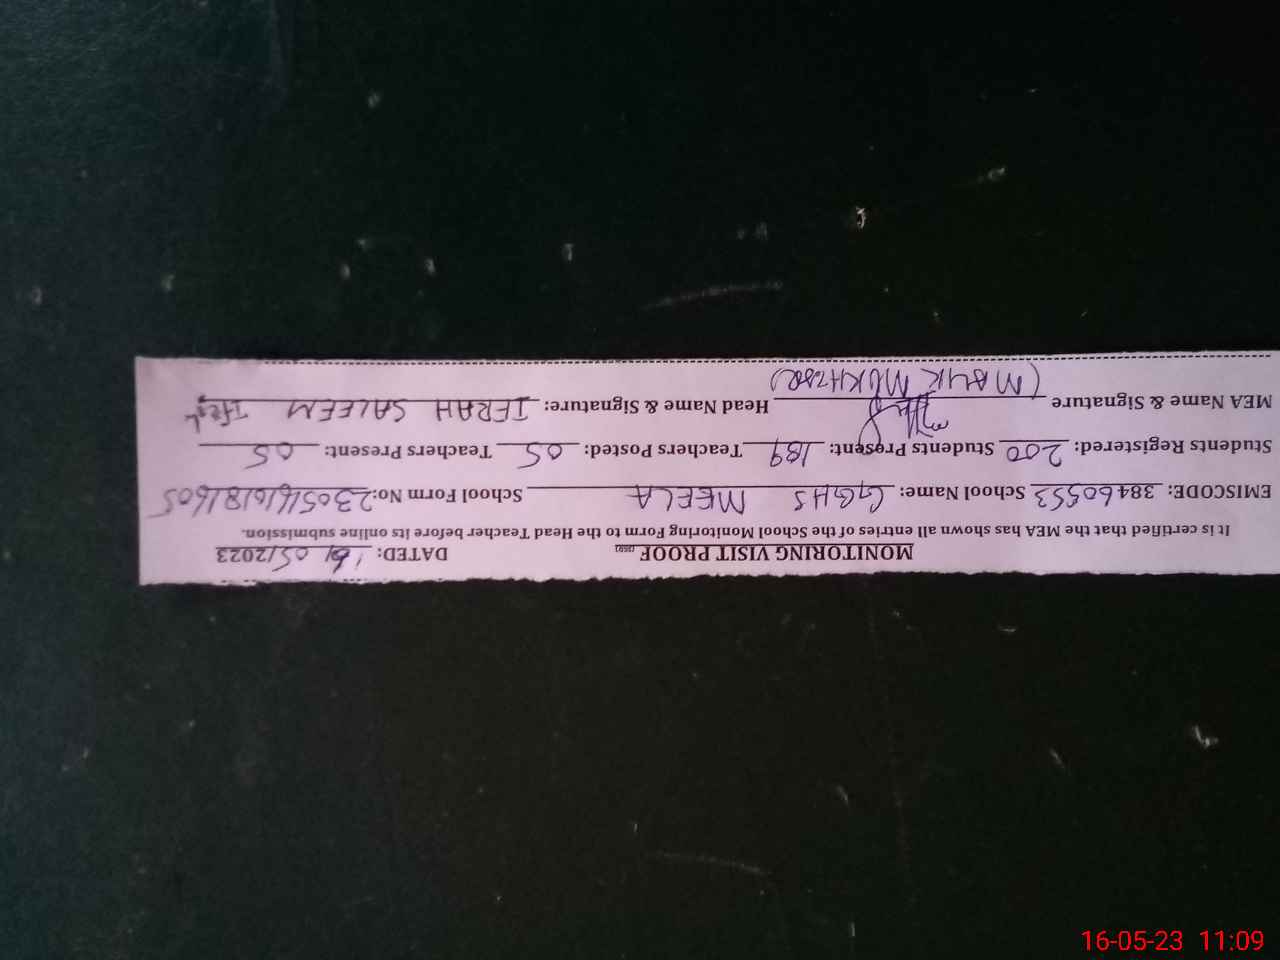 MONITORING VISIT PROOF DATED: 16/05/2023
It is certified that the MEA has shown all entries of the School Monitoring Form to the Head Teacher before its online submission.
EMISCODE: 38460553 School Name: GGHS MEELA School Form No:
Students Registered: 200 Students Present: 189 Teachers Posted: 05 Teachers Present: 05
MEA Name & Signature Head Name & Signature: IFRAH SALEEM
(MALIK MUKHTAR)
16-05-23 11:09